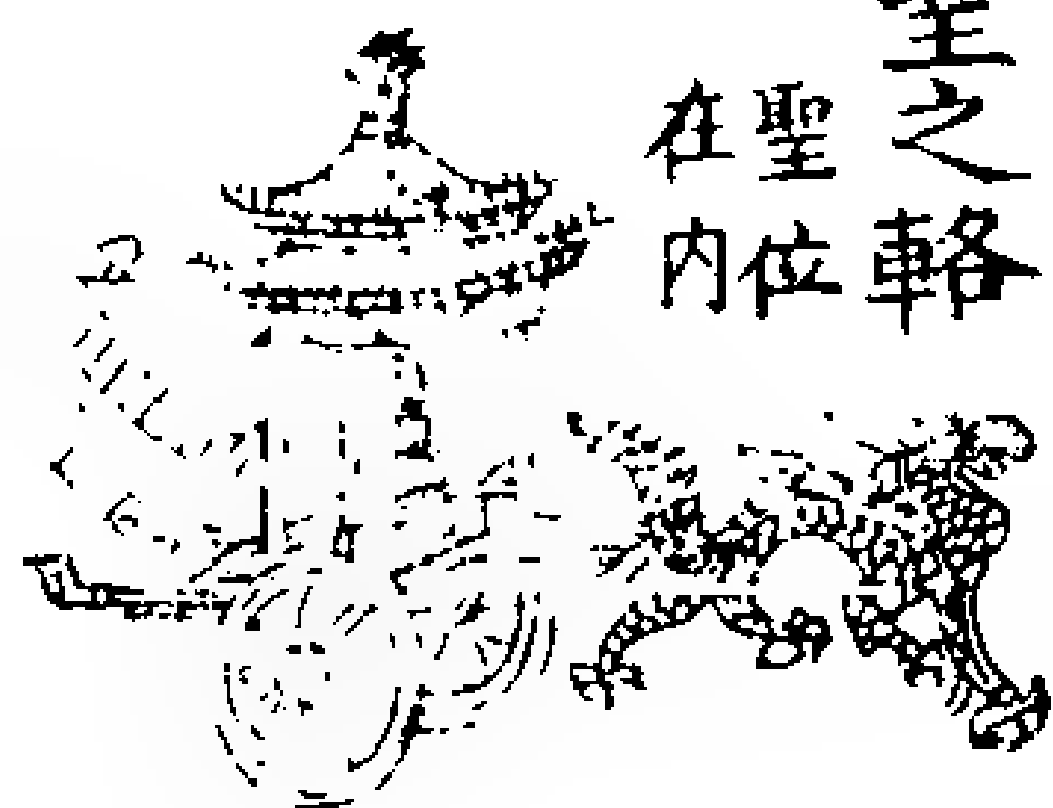 之輅
聖位
在内